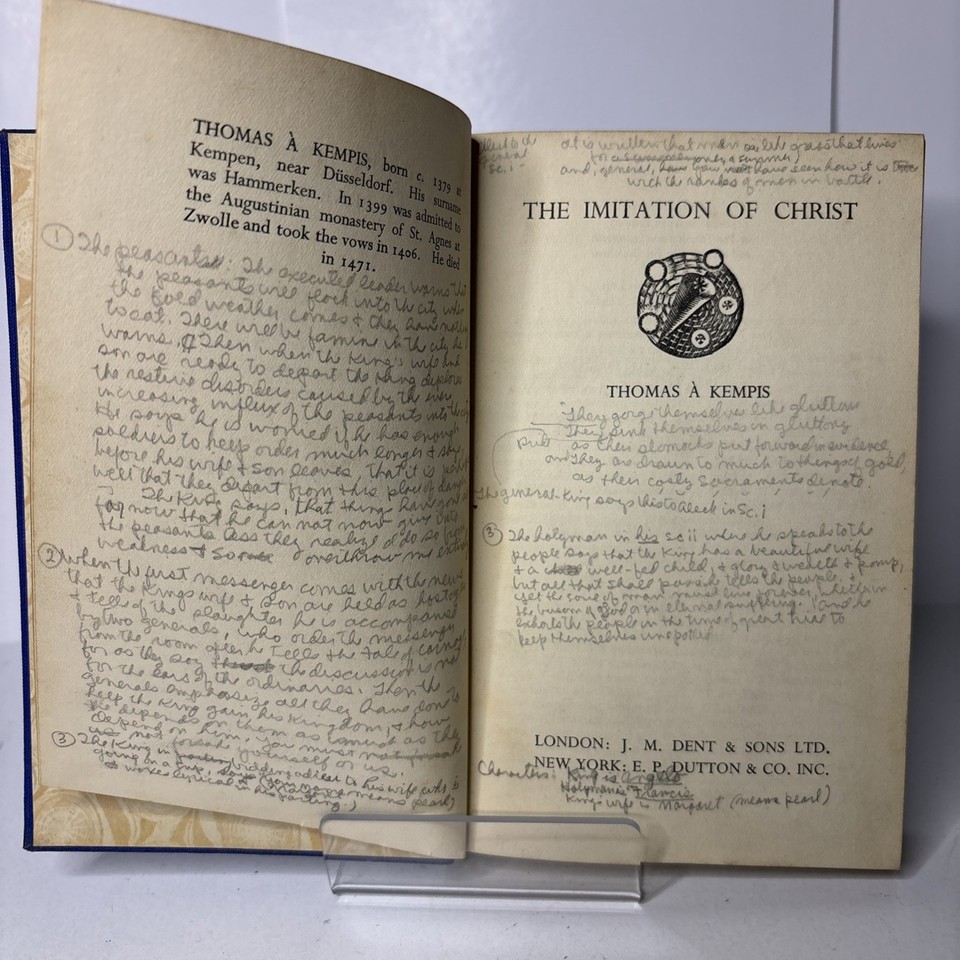 THOMAS À KEMPIS, born c. 1379 at
Kempen, near Düsseldorf. His surname
was Hammerken. In 1399 was admitted to
the Augustinian monastery of St. Agnes at
Zwolle and took the vows in 1406. He died
in 1471.
① The peasants: The executed leader warns that
the peasants will flock into the city when
the cold weather comes & they have nothing
to eat. There will be famine in the city he
warns. Then when the King's wife and
son are ready to depart the King deplores
the restive disorders caused by the ever
increasing influx of the peasants into the city
He says he is worried if he has enough
soldiers to keep order much longer & says
before his wife & son leaves that it is
well that they depart from this place of danger
The King says, that things have gone so
far now that he can not now give into
the peasants less they realize I do so from
weakness & overthrow me entirely
② When the first messenger comes with the news
that the Kings wife & son are held as hostages
& tells of the slaughter he is accompanied
by two generals, who order the messenger
from the room after he tells the tale of carnage
for as they say the discussion is not
for the ears of the ordinaries. Then the
generals emphasize all they have done to
help the King gain his Kingdom, & how
he depends on them as much as they
depend on him. You must not
forsake yourself or us.
③ The King in bidding adieu to his wife who is
going on a trip, says (Margaret means pearl)
& waxes lyrical in his parting.)
general
Sc. i
It is written that man is like grass that lives
for
and, general, you have seen how it is
with the ranks of men in battle.
THE IMITATION OF CHRIST
THOMAS À KEMPIS
"They gorge themselves like gluttons
They sink themselves in gluttony
as their stomachs put forward in evidence
and They are drawn to much to things of gold,
as their costly Sacraments denote
The general-King says this to Aleck in Sc. i
③ The holyman in his sc ii where he speaks to the
people says that the King has a beautiful wife
& a well-fed child, & glory & wealth & pomp,
but all that shall pass he tells the people, &
yet the soul of man must live forever, whether in
the busom of God or in eternal suffering. And he
exhorts the people in the time of great hue to
keep themselves unspotted
LONDON: J. M. DENT & SONS LTD.
NEW YORK: E. P. DUTTON & CO. INC.
Characters: King is Angelo
Holyman is Francis
King's wife is Margaret (means pearl)